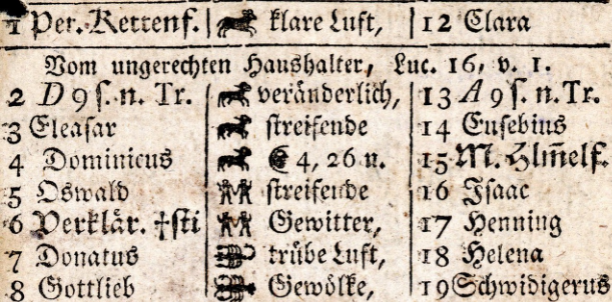 1 Pet. Kettenf. klare Luft, 12 Clara
Vom ungerechten Haushalter, Luc. 16, v. 1.
2 D 9 ſ. n. Tr. veränderlich, 13 A 9 ſ. n. Tr.
3 Eleaſar ſtreifende 14 Euſebius
4 Dominicus 4, 26 n. 15 M. Hĩmelf.
5 Oswald ſtreifende 16 Iſaac
6 Verklär. †ſti Gewitter, 17 Henning
7 Donatus trübe Luft, 18 Helena
8 Gottlieb Gewölke, 19 Schwidigerus